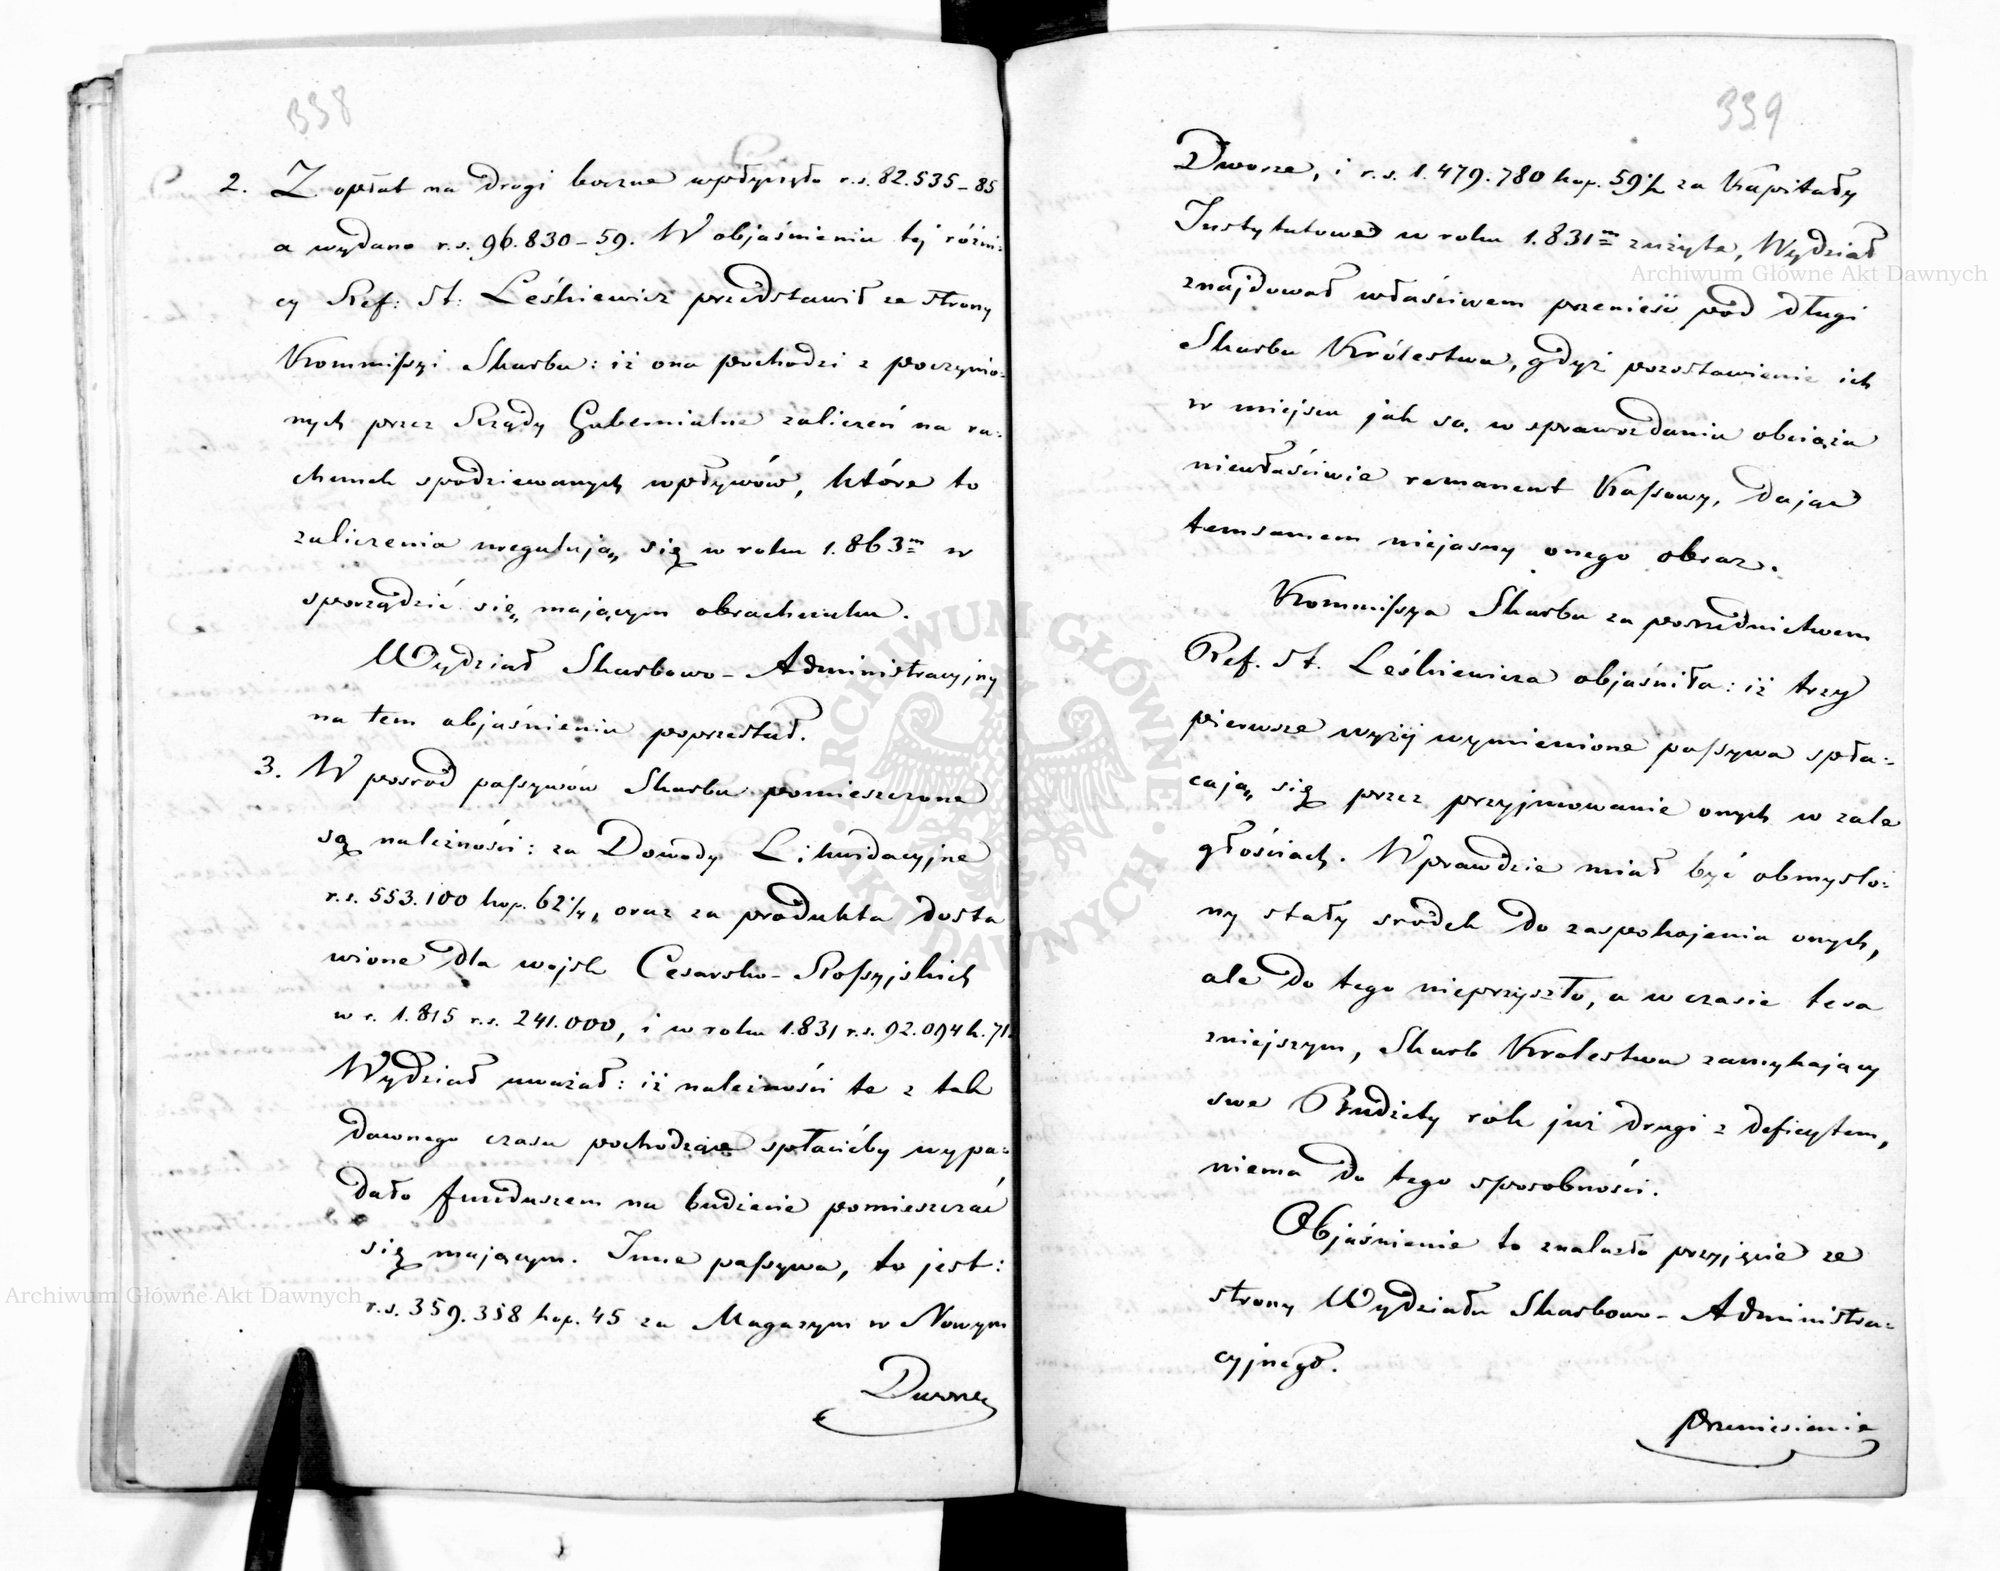 338
2. Z opłat na drogi boczne wpłynęło r.s. 82.535-85
a wydano r.s. 96.830-59. W objaśnieniu tej różni-
cy Ref: St: Leśkiewicz przedstawił ze strony
Kommissyi Skarbu: iż ona pochodzi z poczynio-
nych przez Rządy Gubernialne zaliczeń na ra-
chunek spodziewanych wpływów, które to
zaliczenia uregulują się w roku 1.863m w
sporządzić się mającym obrachunku.
Wydział Skarbowo-Administracyjny
na tem objaśnieniu poprzestał.
3. W pośród passywów Skarbu pomieszczone
są należności: za Dowody Likwidacyjne
r.s. 553.100 kop. 62 1/4, oraz za produkta dosta
wione dla wojsk Cesarsko-Rossyjskich
w r. 1.815 r.s. 241.000, i w roku 1.831 r.s. 92.094 k. 71.
Wydział uważał: iż należności te z tak
dawnego czasu pochodzące spłacićby wypa-
dało funduszem na budżecie pomieszczać
się mającym. Inne passywa, to jest:
r.s. 359.358 kop. 45 za Magazyn w Nowym
Dworze
339
Dworze, i r.s. 1.479.780 kop. 59 1/2 za Kapitały
Instytutowe w roku 1.831m zużyte, Wydział
znajdował właściwem przenieść pod długi
Skarbu Królestwa, gdyż pozostawienie ich
w miejscu jak są w sprawozdaniu obciąża
niewłaściwie remanent Kassowy, dając
temsamem niejasny onego obraz.
Kommissya Skarbu za pośrednictwem
Ref. St. Leśkiewicza objaśniła: iż trzy
pierwsze wyżej wymienione passywa spła-
cają się przez przyjmowanie onych w zale
głościach. Wprawdzie miał być obmyślo-
ny stały srodek do zaspokojenia onych,
ale do tego nieprzyszło, a w czasie tera
zniejszym, Skarb Krolestwa zamykający
swe Budżety rok już drugi z deficytem,
niema do tego sposobności.
Objaśnienie to znalazło przyjęcie ze
strony Wydziału Skarbowo-Administra-
cyjnego.
Przeniesienie
Archiwum Główne Akt Dawnych
Archiwum Główne Akt Dawnych
ARCHIWUM GŁÓWNE AKT DAWNYCH